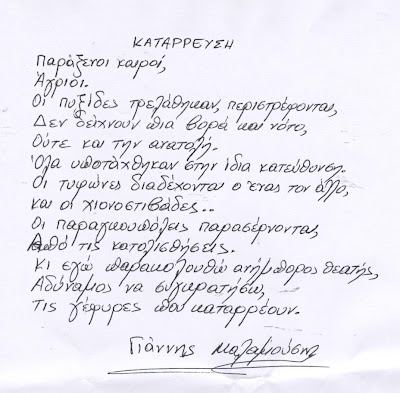 ΚΑΤΑΡΡΕΥΣΗ
Παράξενοι καιροί,
Άγριοι.
Οι πυξίδες τρελάθηκαν, περιστρέφονται,
Δεν δείχνουν πια βορά και νότο,
Ούτε και την ανατολή.
Όλα υποτάχθηκαν στην ίδια κατεύθυνση.
Οι τυφώνες διαδέχονται ο ένας τον άλλο,
και οι χιονοστιβάδες..
Οι παραγκουπόλεις παρασέρνονται,
Από τις κατολισθήσεις.
Κι εγώ παρακολουθώ ανήμπορος θεατής,
Αδύναμος να συγκρατήσω,
Τις γέφυρες που καταρρέουν.
Γιάννης